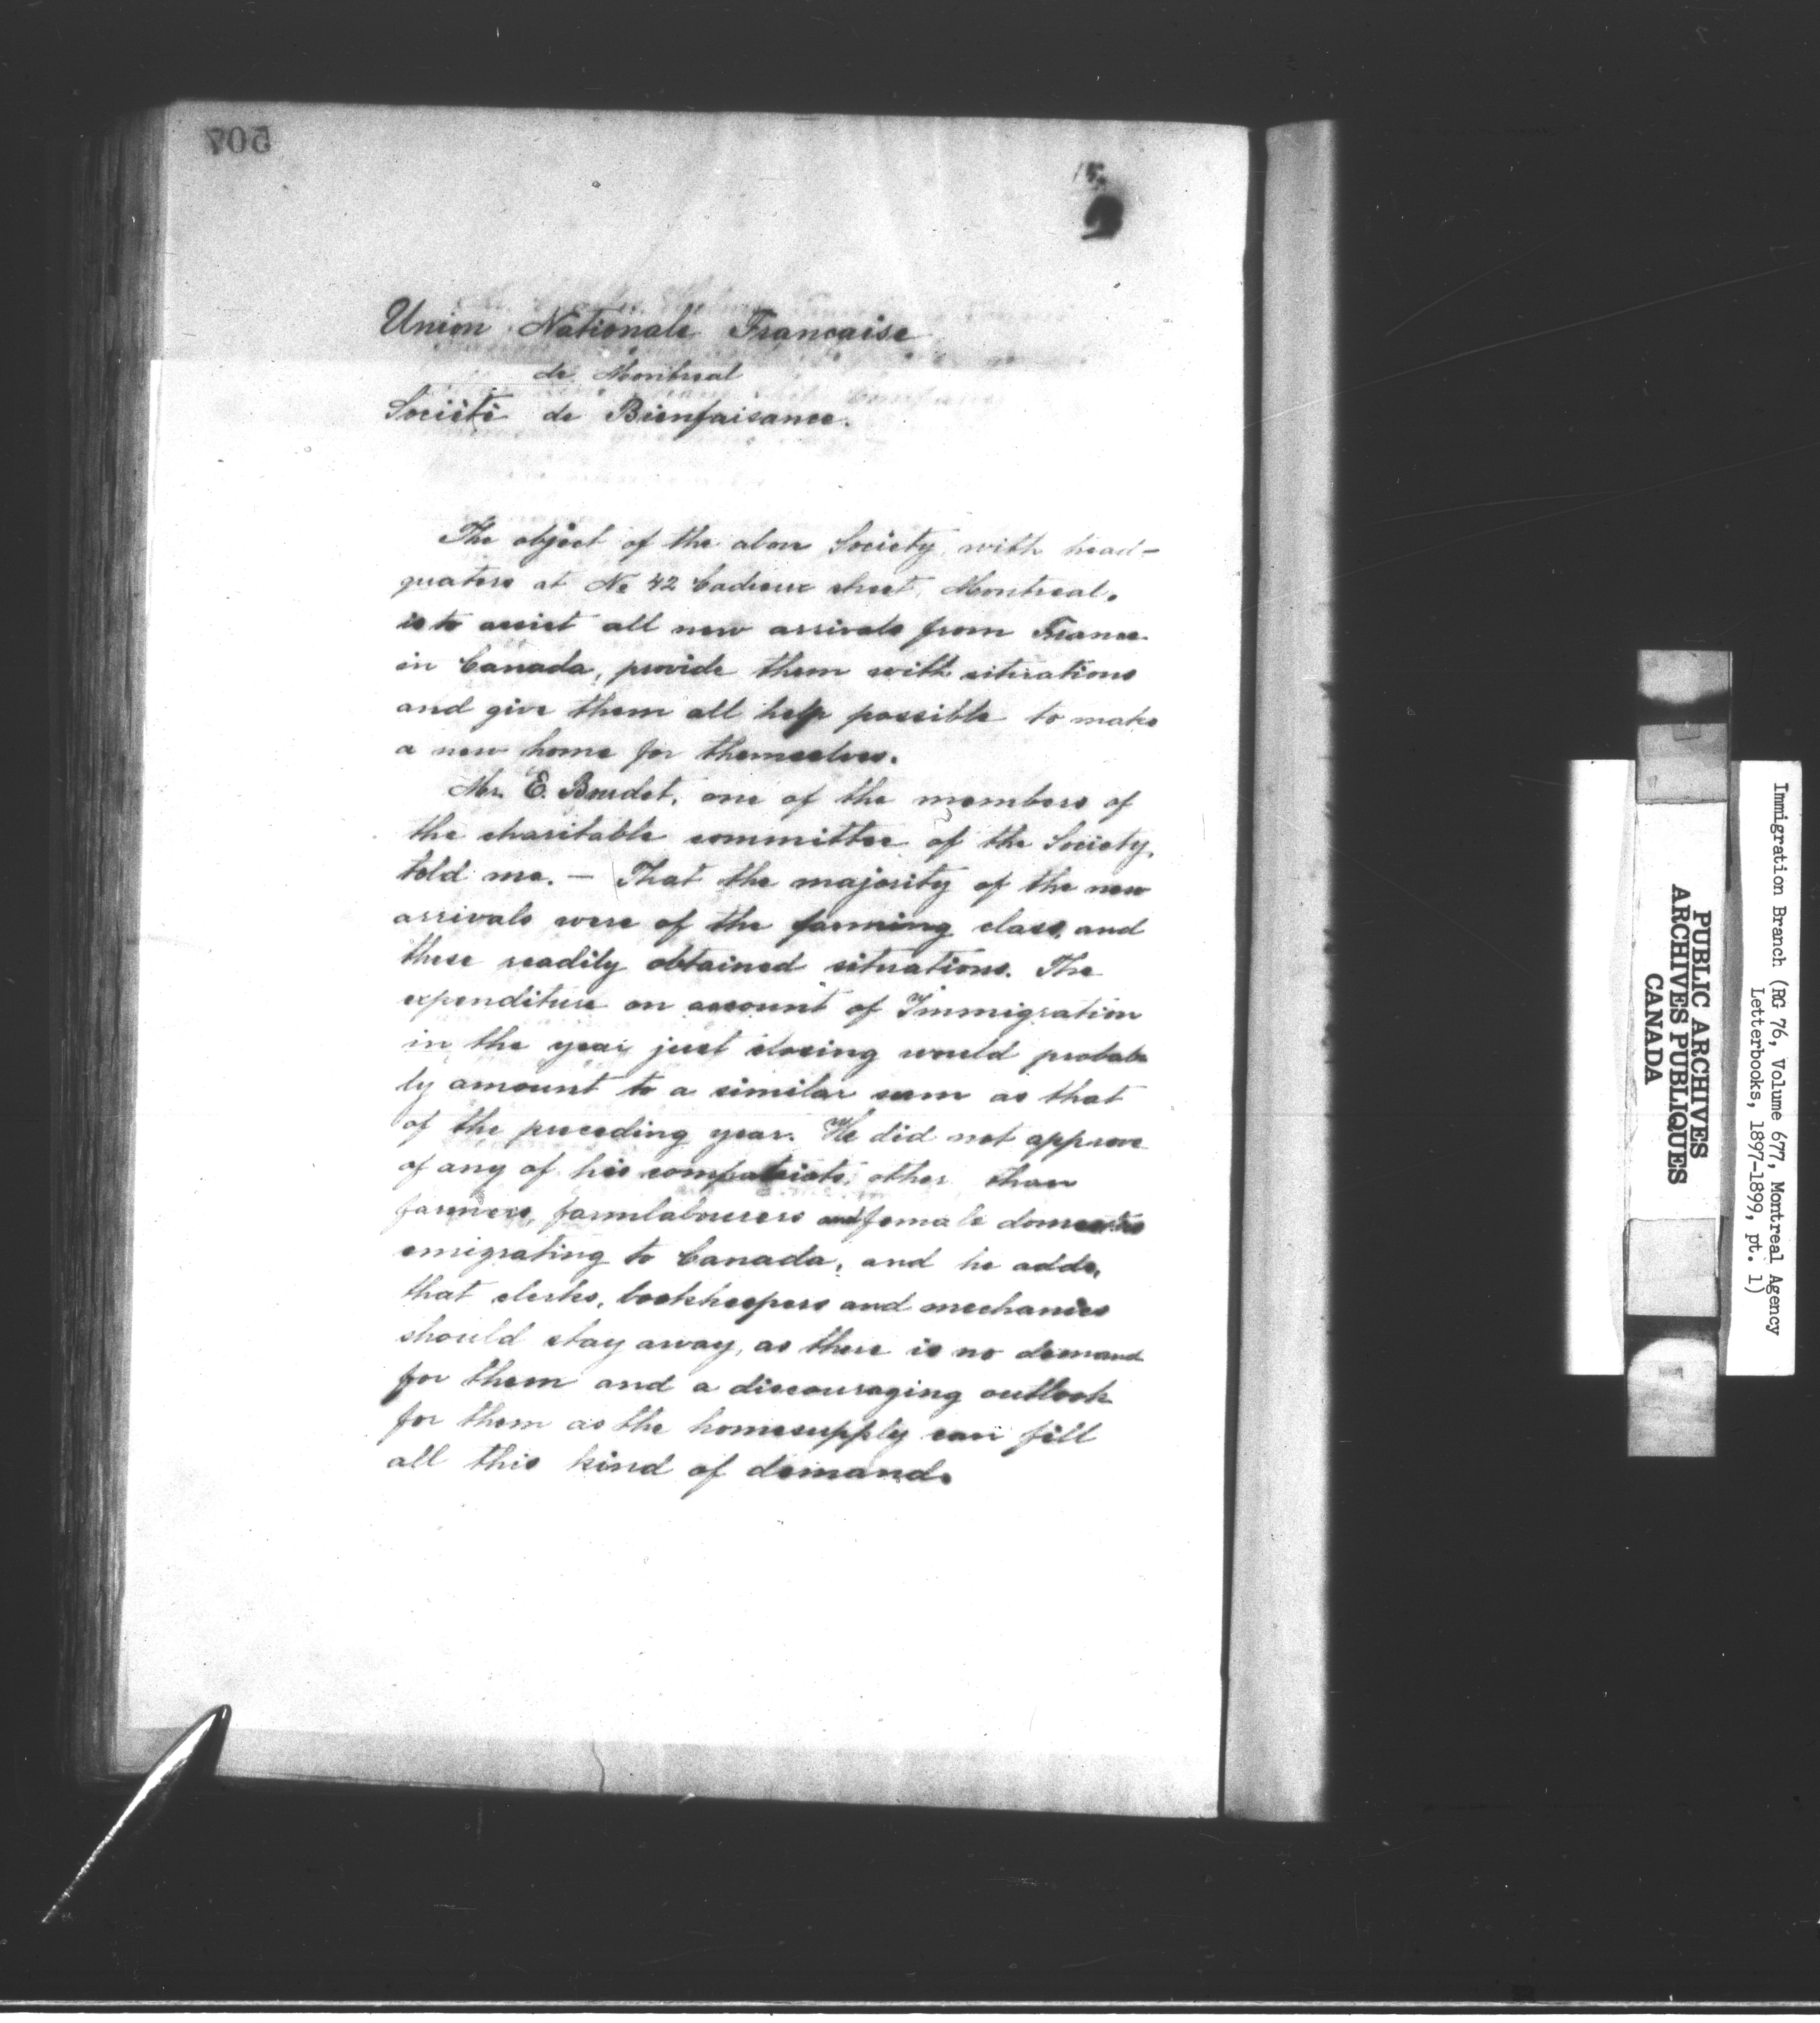 507
15.
Union Nationale Francaise
de Montreal
Société de Bienfaisance.
The object of the above Society, with head-
quaters at No 42 Cadieux street, Montreal.
is to assist all new arrivals from France
in Canada, provide them with situations
and give them all help possible to make
a new home for themselves.
Mr. E. Boudet, one of the members of
the charitable committee of the Society,
told me. — That the majority of the new
arrivals were of the farming class, and
these readily obtained situations. The
expenditure on account of Immigration
in the year just closing would probab
ly amount to a similar sum as that
of the preceding year. He did not approve
of any of his compatriots, other than
farmers, farmlabourers and female domestics
emigrating to Canada, and he adds,
that clerks, bookkeepers and mechanics
should stay away, as there is no demand
for them and a discouraging outlook
for them as the homesupply can fill
all this kind of demand.
Immigration Branch (RG 76, Volume 677, Montreal Agency
Letterbooks, 1897-1899, pt. 1)
PUBLIC ARCHIVES
ARCHIVES PUBLIQUES
CANADA